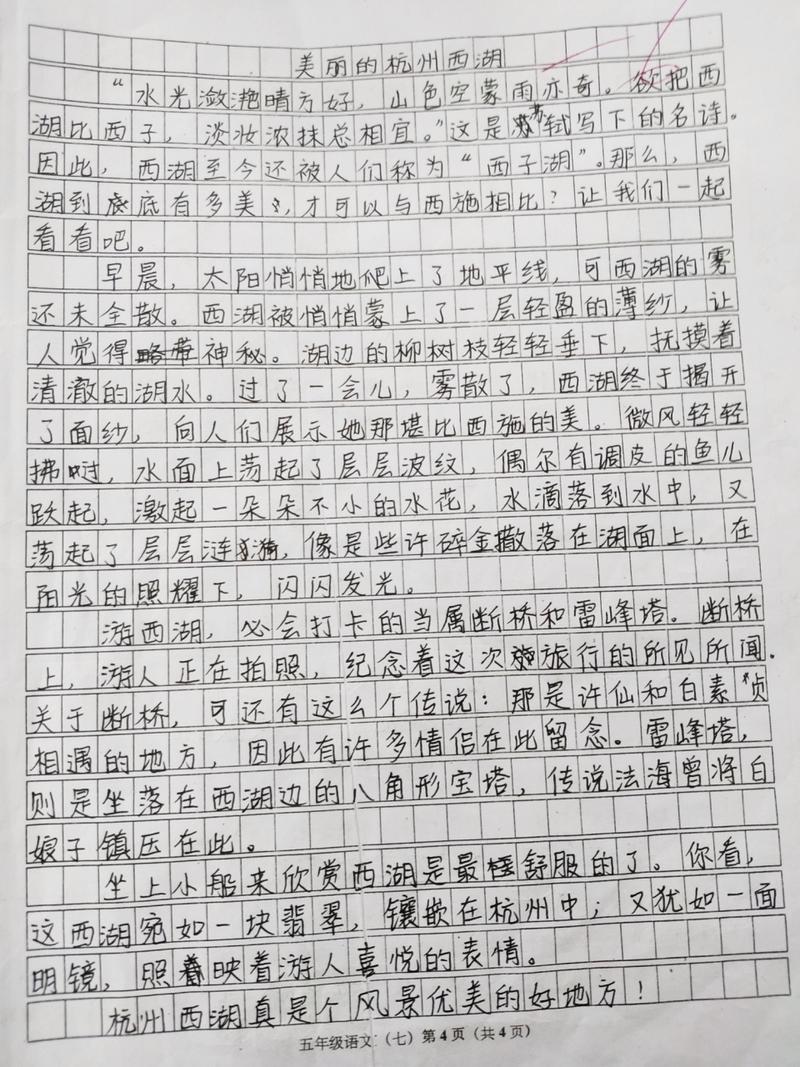 美丽的杭州西湖
“水光潋滟晴方好，山色空蒙雨亦奇。欲把西
湖比西子，淡妆浓抹总相宜。”这是苏轼写下的名诗。
因此，西湖至今还被人们称为“西子湖”。那么，西
湖到底有多美，才可以与西施相比？让我们一起
看看吧。
早晨，太阳悄悄地爬上了地平线，可西湖的雾
还未全散。西湖被悄悄蒙上了一层轻盈的薄纱，让
人觉得略带神秘。湖边的柳树枝轻轻垂下，抚摸着
清澈的湖水。过了一会儿，雾散了，西湖终于揭开
了面纱，向人们展示她那堪比西施的美。微风轻轻
拂过，水面上荡起了层层波纹，偶尔有调皮的鱼儿
跃起，激起一朵朵不小的水花，水滴落到水中，又
荡起了层层涟漪，像是些许碎金撒落在湖面上，在
阳光的照耀下，闪闪发光。
游西湖，必会打卡的当属断桥和雷峰塔。断桥
上，游人正在拍照，纪念着这次旅行的所见所闻。
关于断桥，可还有这么个传说：那是许仙和白素贞
相遇的地方，因此有许多情侣在此留念。雷峰塔，
则是坐落在西湖边的八角形宝塔，传说法海曾将白
娘子镇压在此。
坐上小船来欣赏西湖是最舒服的了。你看，
这西湖宛如一块翡翠，镶嵌在杭州中；又犹如一面
明镜，照映着游人喜悦的表情。
杭州西湖真是个风景优美的好地方！
五年级语文（七）第4页（共4页）